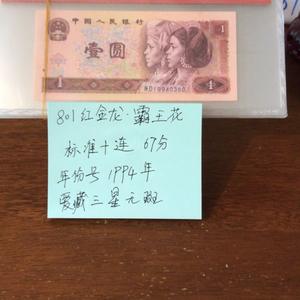 中国人民银行
壹圆
1
1
ND19940360
801红金龙·霸王花
标准十连 67分
年份号 1994年
爱藏三星元斑